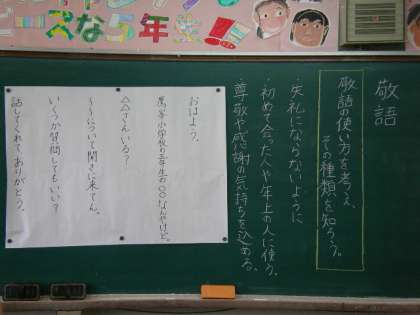 ズな5年生!!
敬語
敬語の使い方を考え、
その種類を知ろう。
・失礼にならないように
・初めて合った人や年上の人に使う。
・尊敬や感謝の気持ちを込める。
おはよう。
小学校の五年生の〇〇なんやけど。
△△さんいる?
〜〜について聞きに来てん。
いくつか質問してもいい?
話してくれて、ありがとう。